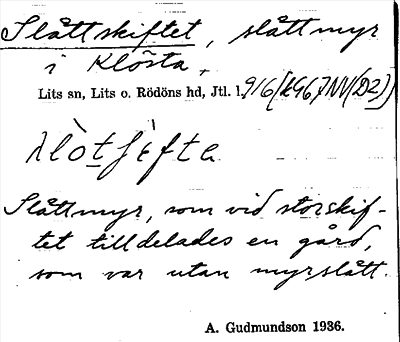 Slåttskiftet, slåttmyr
i Klösta.
Lits sn, Lits o. Rödöns hd, Jtl. l.
Slåttmyr, som vid storskif-
tet tilldelades en gård,
som var utan myrslått.
A. Gudmundson 1936.